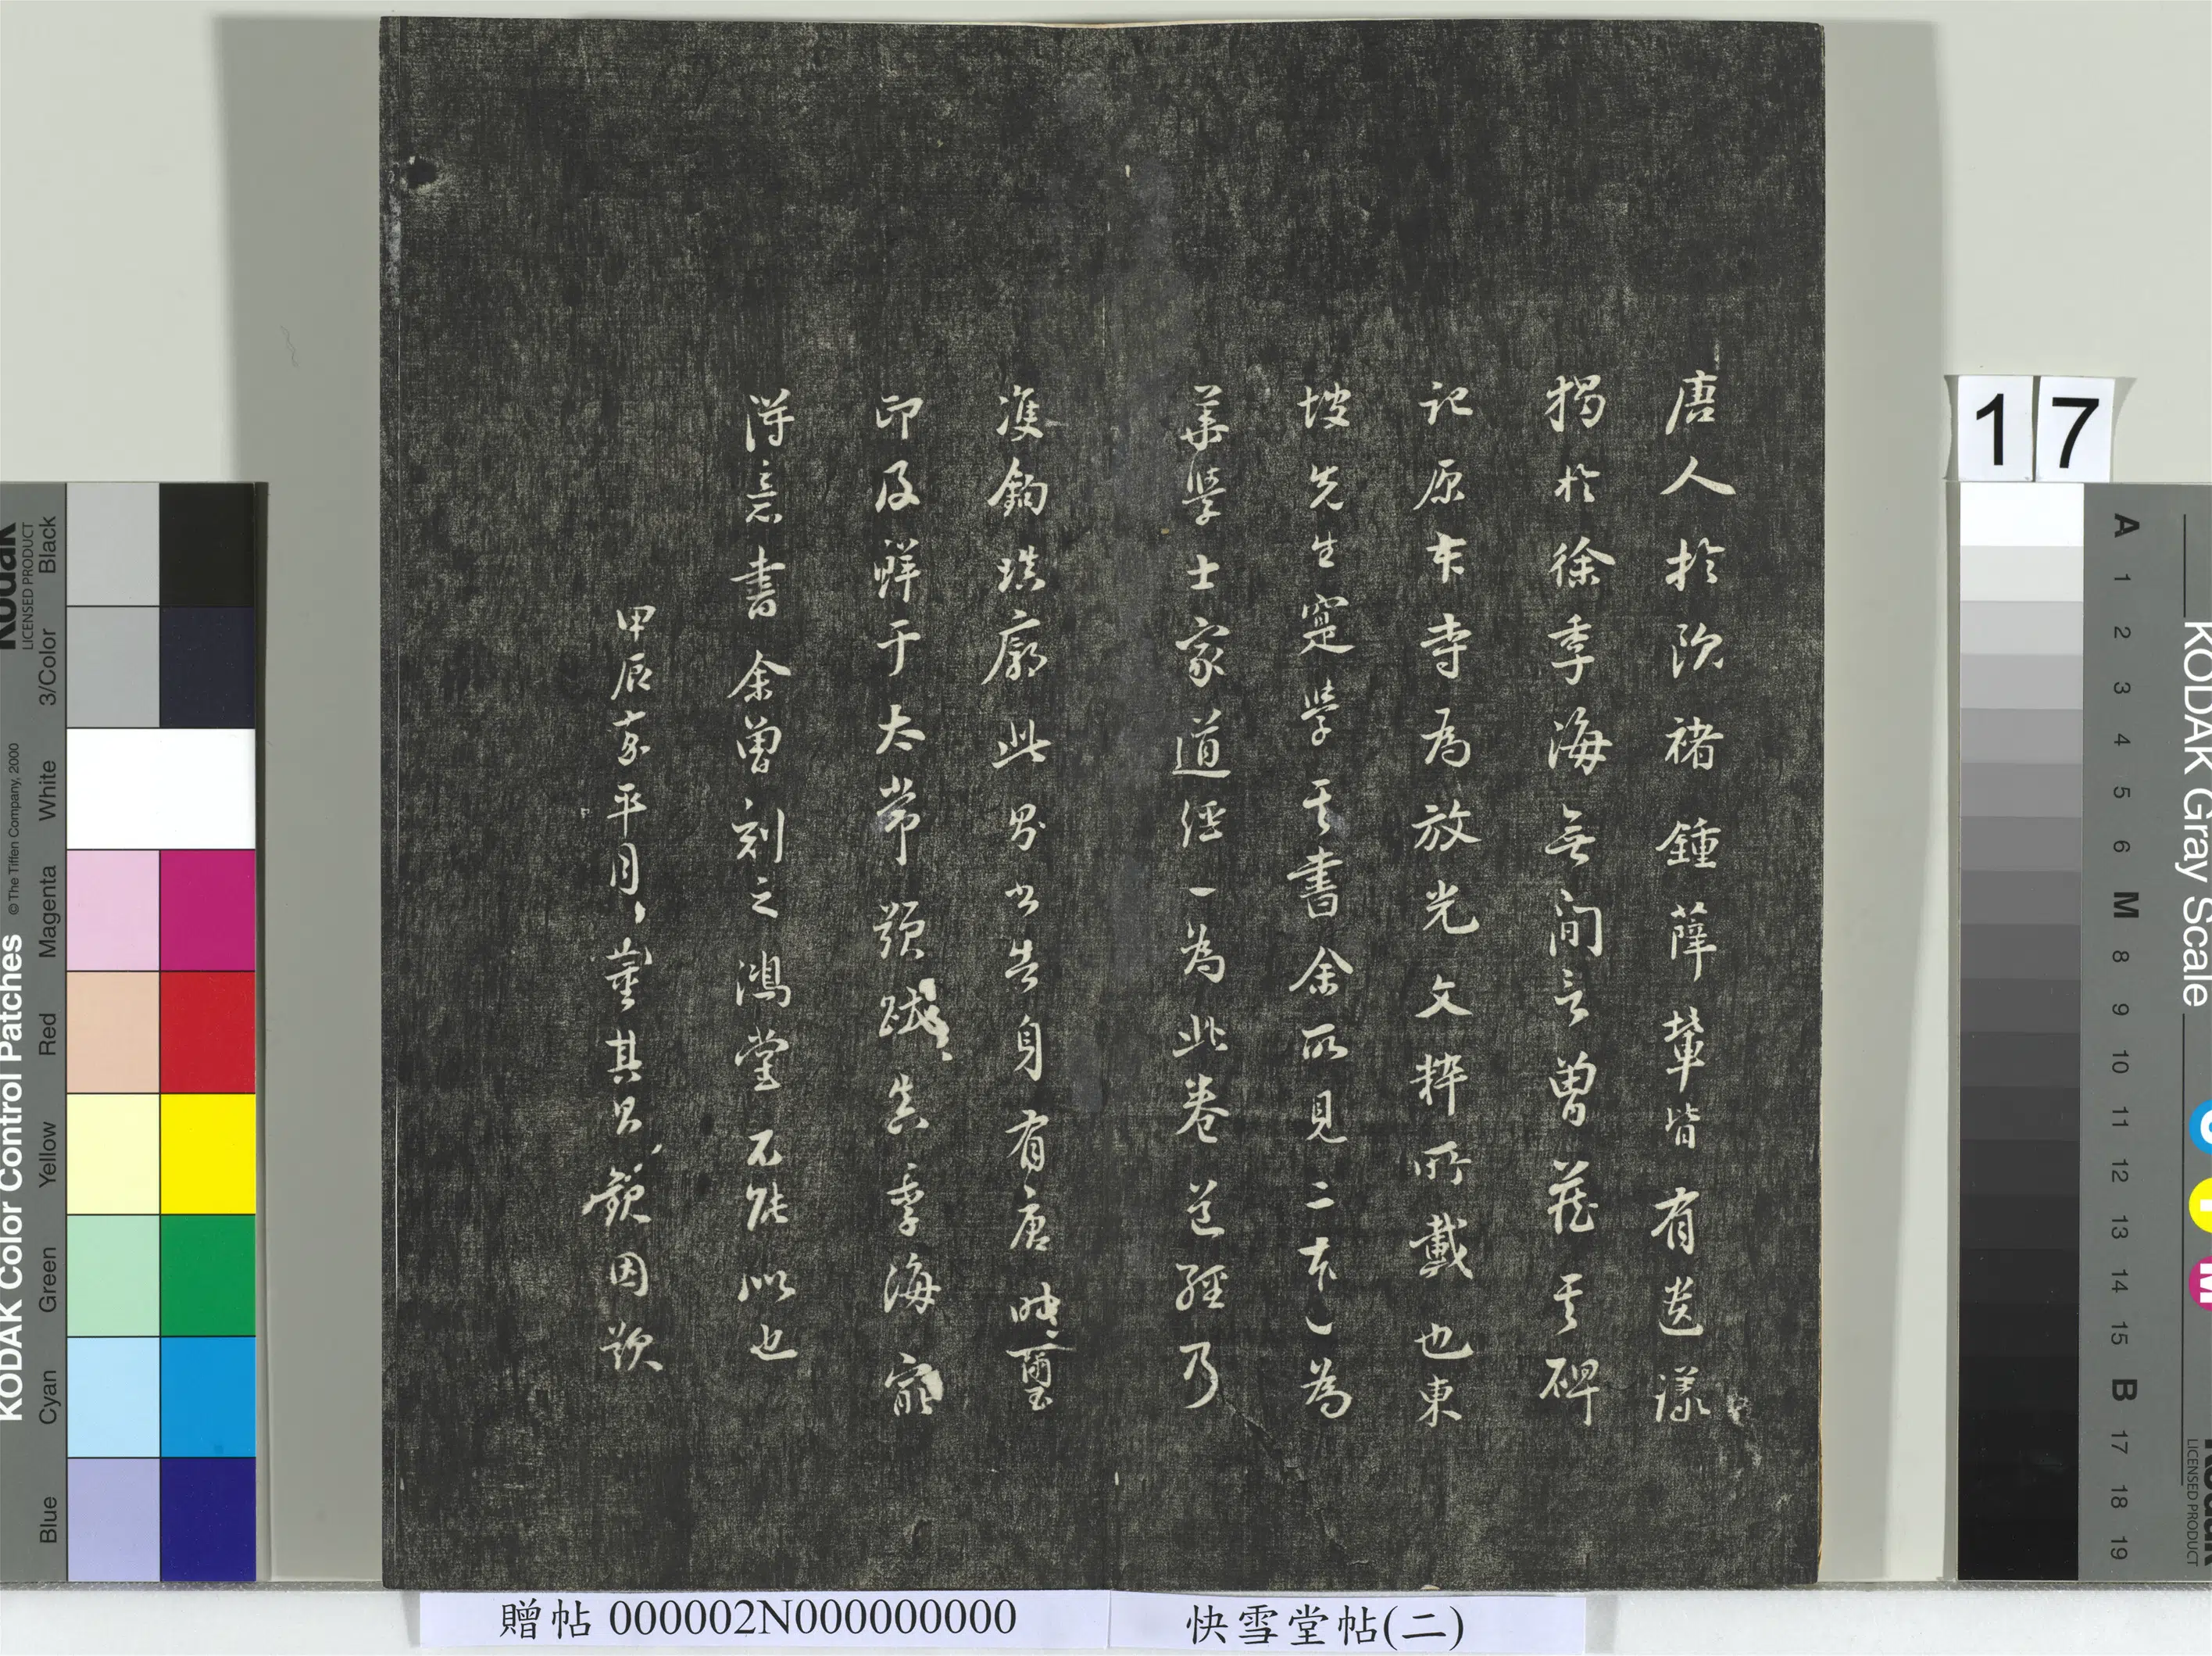 唐人於歐褚鍾薛輩皆有遺議
獨於徐季海無間言曾藏其碑
記原本寺為放光文粹所載也東
坡先生寔學其書余所見二本一為
華學士家道經一為此卷道經乃
雙鉤填廓此公告身有唐時璽
印及鮮于太常題跋真季海最
得意書余曾刻之鴻堂不能似也
甲辰嘉平月董其昌題因歎
贈帖 000002N000000000
快雪堂帖(二)
17
KODAK Color Control Patches
©The Tiffen Company, 2000
Kodak
LICENSED PRODUCT
Blue
Cyan
Green
Yellow
Red
Magenta
White
3/Color
Black
KODAK Gray Scale
A
1
2
3
4
5
6
M
8
9
10
11
12
13
14
15
B
17
18
19
C
Y
M
Kodak
LICENSED PRODUCT